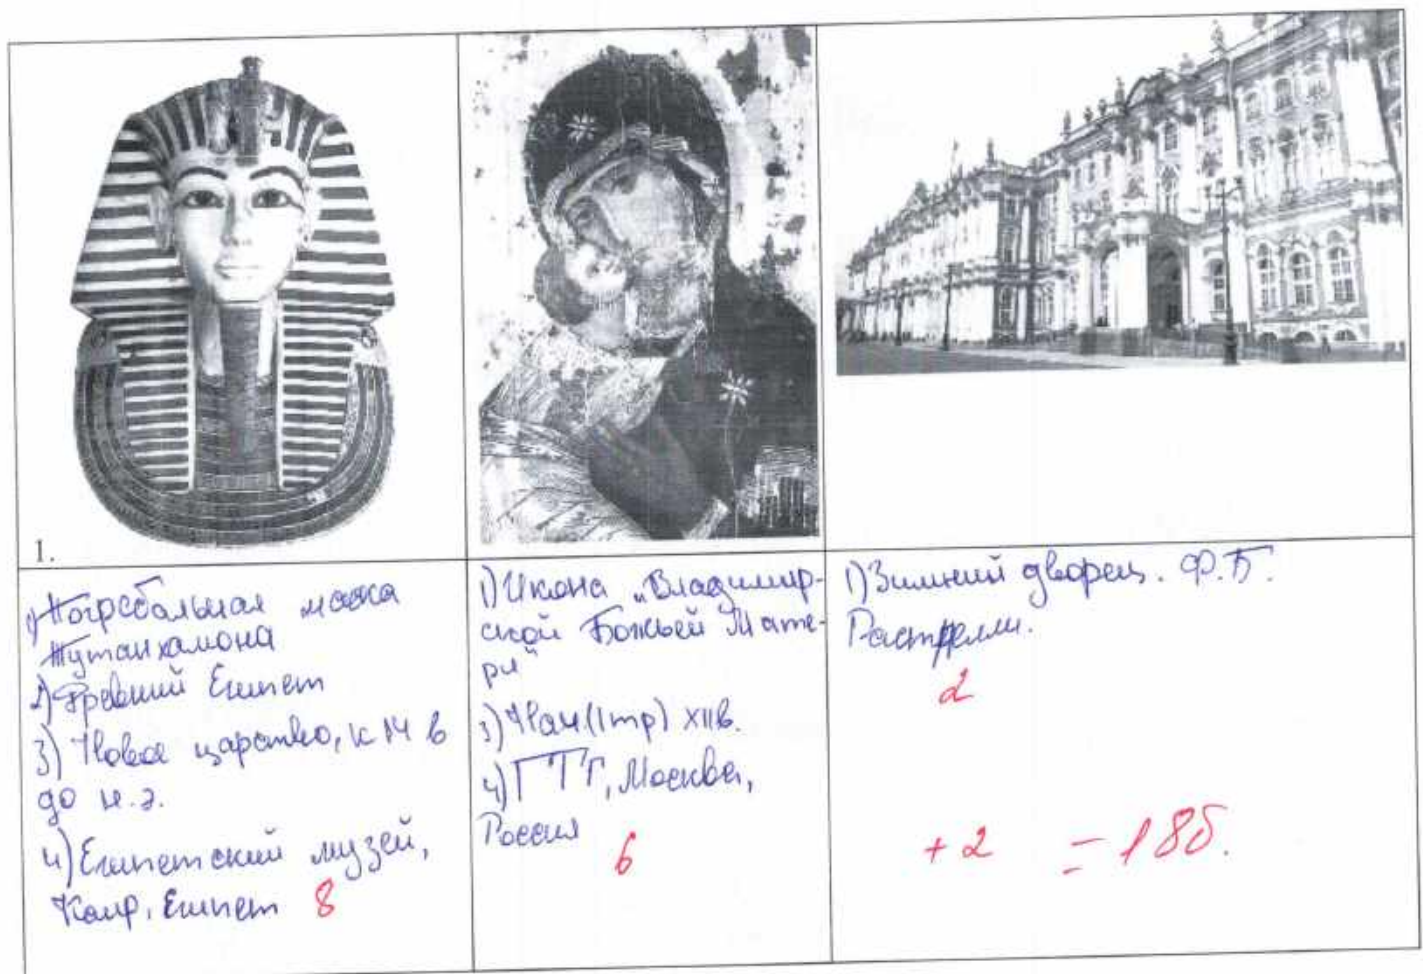 1.
1) Погребальная маска
Тутанхамона
2) Древний Египет
3) Новое царство, к 14 в
до н.э.
4) Египетский музей,
Каир, Египет 8
1) Икона „Владимир-
ской Божьей Мате-
ри"
3) Нач (I тр) XII в.
4) ГТГ, Москва,
Россия
6
1) Зимний дворец. Ф.Б.
Растрелли.
2
+ 2 = 18б.